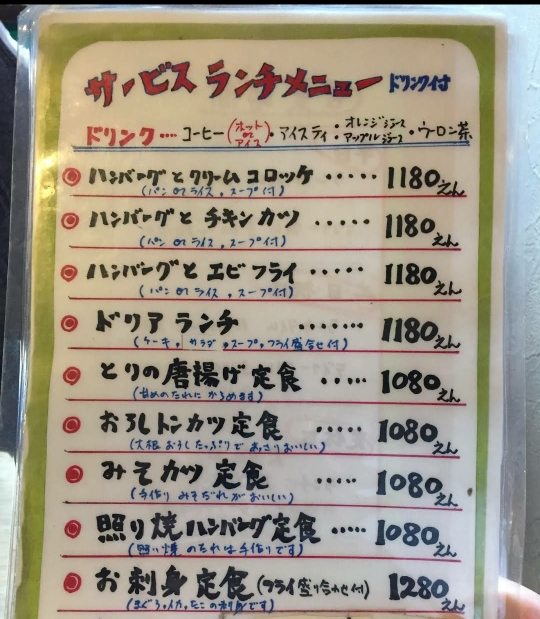 サービス ランチメニュー ドリンク付
ドリンク…… コーヒー(ホット or アイス)・アイスティ・オレンジジュース・アップルジュース・ウーロン茶
◎ ハンバーグと クリームコロッケ ····· 1180えん
(パン or ライス, スープ付)
◎ ハンバーグと チキンカツ ····· 1180えん
(パン or ライス, スープ付)
◎ ハンバーグと エビフライ ····· 1180えん
(パン or ライス, スープ付)
◎ ドリア ランチ ······· 1180えん
(ケーキ, サラダ, スープ, フライ盛合せ付)
◎ とりの唐揚げ定食 ····· 1080えん
(甘めのたれに からめます)
◎ おろしトンカツ定食 ····· 1080えん
(大根おろしたっぷりで あっさりおいしい)
◎ みそカツ定食 ····· 1080えん
(手作り みそだれが おいしい)
◎ 照り焼ハンバーグ定食 ····· 1080えん
(照り焼 のたれは 手作りです)
◎ お刺身定食(フライ盛り合わせ付) 1280えん
(まぐろ,イカ,たこ の刺身です)